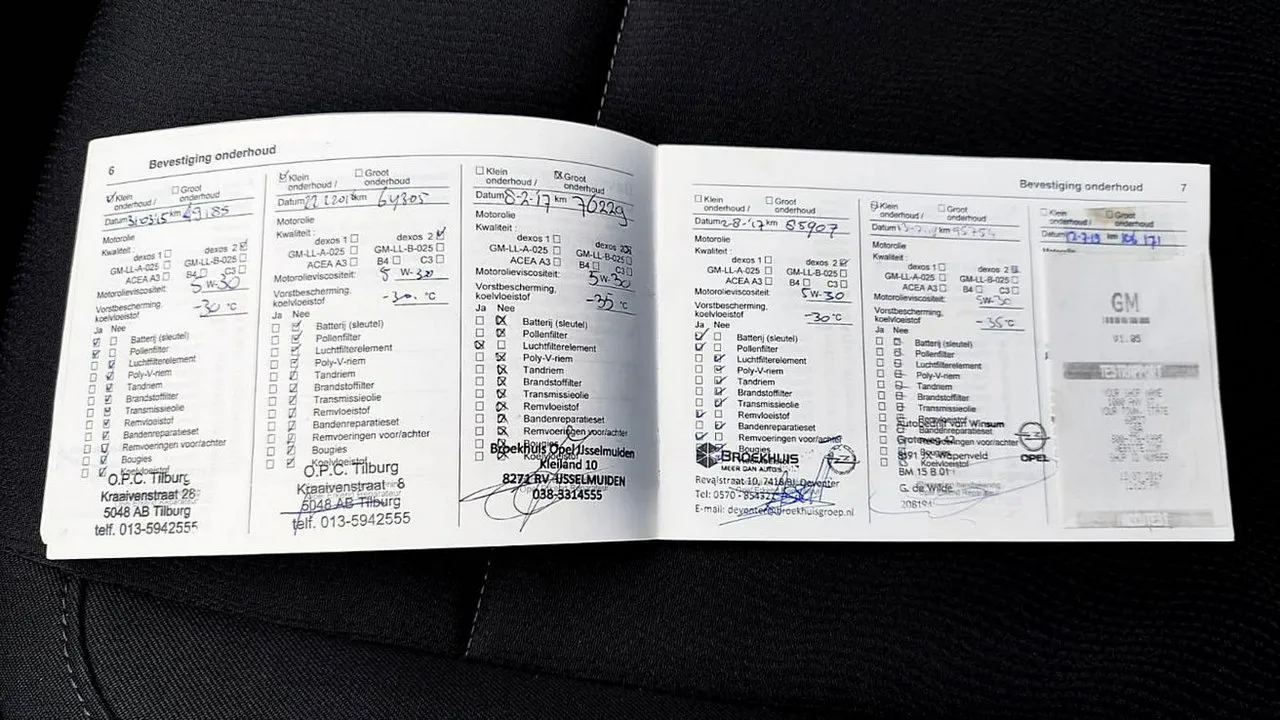 6
Bevestiging onderhoud
Klein onderhoud /
Groot onderhoud
Datum 31-03-15 km 49185
Motorolie
Kwaliteit :
dexos 1
dexos 2
GM-LL-A-025
GM-LL-B-025
ACEA A3
B4
C3
Motorolieviscositeit:
5 W-30
Vorstbescherming, koelvloeistof
-30 °C
Ja Nee
Batterij (sleutel)
Pollenfilter
Luchtfilterelement
Poly-V-riem
Tandriem
Brandstoffilter
Transmissieolie
Remvloeistof
Bandenreparatieset
Remvoeringen voor/achter
Bougies
Koelvloeistof
O.P.C. Tilburg
Kraaivenstraat 28
5048 AB Tilburg
telf. 013-5942555
Klein onderhoud /
Groot onderhoud
Datum km 64305
Motorolie
Kwaliteit :
dexos 1
dexos 2
GM-LL-A-025
GM-LL-B-025
ACEA A3
B4
C3
Motorolieviscositeit:
5 W-30
Vorstbescherming, koelvloeistof
-30 °C
Ja Nee
Batterij (sleutel)
Pollenfilter
Luchtfilterelement
Poly-V-riem
Tandriem
Brandstoffilter
Transmissieolie
Remvloeistof
Bandenreparatieset
Remvoeringen voor/achter
Bougies
Koelvloeistof
O.P.C. Tilburg
Kraaivenstraat 8
5048 AB Tilburg
telf. 013-5942555
Klein onderhoud /
Groot onderhoud
Datum 8-2-17 km 76229
Motorolie
Kwaliteit :
dexos 1
dexos 2
GM-LL-A-025
GM-LL-B-025
ACEA A3
B4
C3
Motorolieviscositeit:
5W-30
Vorstbescherming, koelvloeistof
-35 °C
Ja Nee
Batterij (sleutel)
Pollenfilter
Luchtfilterelement
Poly-V-riem
Tandriem
Brandstoffilter
Transmissieolie
Remvloeistof
Bandenreparatieset
Remvoeringen voor/achter
Bougies
Koelvloeistof
Broekhuis Opel IJsselmuiden
Kleiland 10
8271 RV IJSSELMUIDEN
038-3314555
Bevestiging onderhoud
7
Klein onderhoud /
Groot onderhoud
Datum 2-8-'17 km 85907
Motorolie
Kwaliteit :
dexos 1
dexos 2
GM-LL-A-025
GM-LL-B-025
ACEA A3
B4
C3
Motorolieviscositeit:
5W-30
Vorstbescherming, koelvloeistof
-30 °C
Ja Nee
Batterij (sleutel)
Pollenfilter
Luchtfilterelement
Poly-V-riem
Tandriem
Brandstoffilter
Transmissieolie
Remvloeistof
Bandenreparatieset
Remvoeringen voor/achter
Bougies
BROEKHUIS
MEER DAN AUTOS
Revalstraat 10, 7418 BJ Deventer
Tel: 0570 -
E-mail: deventer@broekhuisgroep.nl
Klein onderhoud /
Groot onderhoud
Datum km 95754
Motorolie
Kwaliteit :
dexos 1
dexos 2
GM-LL-A-025
GM-LL-B-025
ACEA A3
B4
C3
Motorolieviscositeit:
5W-30
Vorstbescherming, koelvloeistof
-35 °C
Ja Nee
Batterij (sleutel)
Pollenfilter
Luchtfilterelement
Poly-V-riem
Tandriem
Brandstoffilter
Transmissieolie
Remvloeistof
Bandenreparatieset
Remvoeringen voor/achter
Bougies
Koelvloeistof
Autobedrijf van Winsum
Groteweg 42
8191 JX Wapenveld
BM 15 B 01
G. de Wilde
206194
OPEL
Klein onderhoud /
Groot onderhoud
Datum 12-7-19 km 106 171
GM
V1.05
TESTRAPPORT
YOUR SHOP NAME
YOUR TOWN, STATE